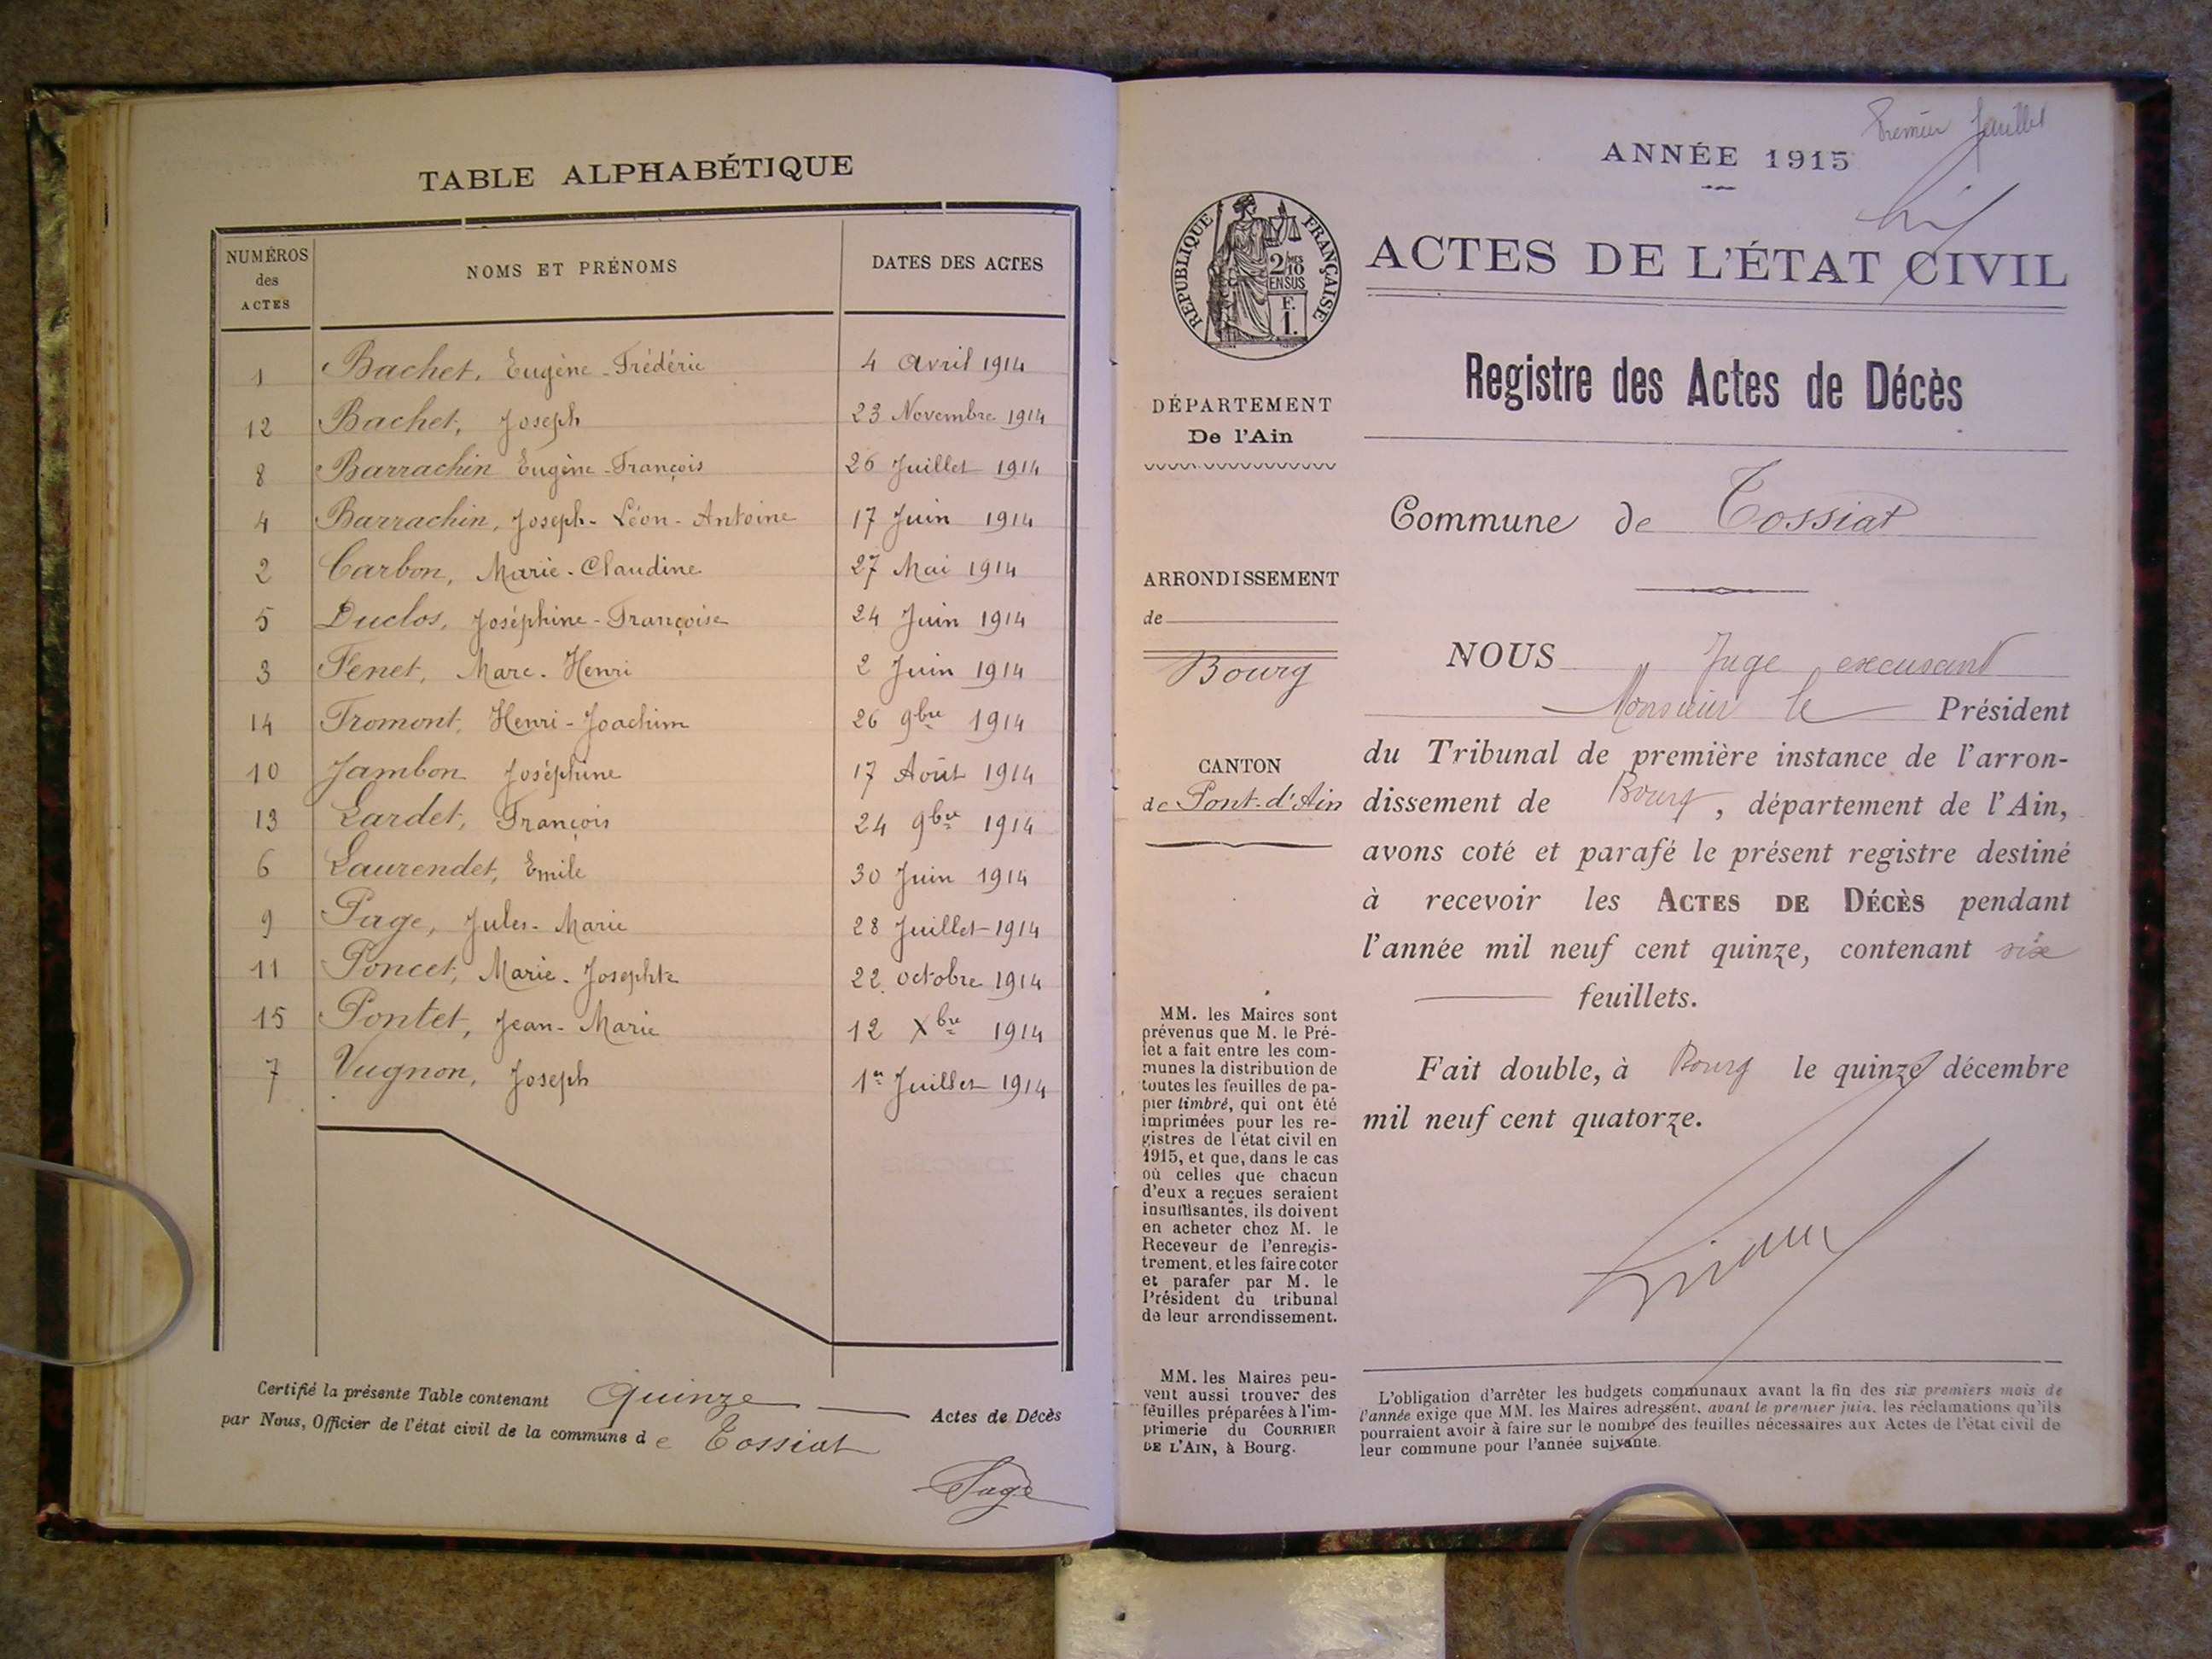 TABLE ALPHABÉTIQUE
NUMÉROS des ACTES NOMS ET PRÉNOMS DATES DES ACTES
1 Bachet, Eugène-Frédéric 4 Avril 1914
12 Bachet, Joseph 23 Novembre 1914
8 Barrachin Eugène-François 26 Juillet 1914
4 Barrachin, Joseph-Léon-Antoine 17 Juin 1914
2 Carbon, Marie-Claudine 27 Mai 1914
5 Duclos, Joséphine-Françoise 24 Juin 1914
3 Fenet, Marc-Henri 2 Juin 1914
14 Fromont, Henri-Joachim 26 9bre 1914
10 Jambon Joséphine 17 Août 1914
13 Lardet, François 24 9bre 1914
6 Laurendet, Emile 30 Juin 1914
9 Page, Jules-Marie 28 Juillet 1914
11 Poncet, Marie-Josephte 22 octobre 1914
15 Pontet, Jean-Marie 12 Xbre 1914
7 Vugnon, Joseph 1er Juillet 1914
Certifié la présente Table contenant Quinze Actes de Décès
par Nous, Officier de l'état civil de la commune de Tossiat
Page
Premier feuillet
ANNÉE 1915
ACTES DE L'ÉTAT CIVIL
RÉPUBLIQUE FRANÇAISE
2/10MES
EN SUS
F.
1.
Registre des Actes de Décès
DÉPARTEMENT
De l'Ain
Commune de Tossiat
ARRONDISSEMENT
de
Bourg
CANTON
de Pont-d'Ain
NOUS Juge excusant
Monsieur le Président
du Tribunal de première instance de l'arron-
dissement de Bourg, département de l'Ain,
avons coté et parafé le présent registre destiné
à recevoir les ACTES DE DÉCÈS pendant
l'année mil neuf cent quinze, contenant six
feuillets.
Fait double, à Bourg le quinze décembre
mil neuf cent quatorze.
MM. les Maires sont
prévenus que M. le Pré-
fet a fait entre les com-
munes la distribution de
toutes les feuilles de pa-
pier timbré, qui ont été
imprimées pour les re-
gistres de l'état civil en
1915, et que, dans le cas
où celles que chacun
d'eux a reçues seraient
insuffisantes, ils doivent
en acheter chez M. le
Receveur de l'enregis-
trement, et les faire coter
et parafer par M. le
Président du tribunal
de leur arrondissement.
MM. les Maires peu-
vent aussi trouver des
feuilles préparées à l'im-
primerie du COURRIER
DE L'AIN, à Bourg.
L'obligation d'arrêter les budgets communaux avant la fin des six premiers mois de
l'année exige que MM. les Maires adressent, avant le premier juin, les réclamations qu'ils
pourraient avoir à faire sur le nombre des feuilles nécessaires aux Actes de l'état civil de
leur commune pour l'année suivante.